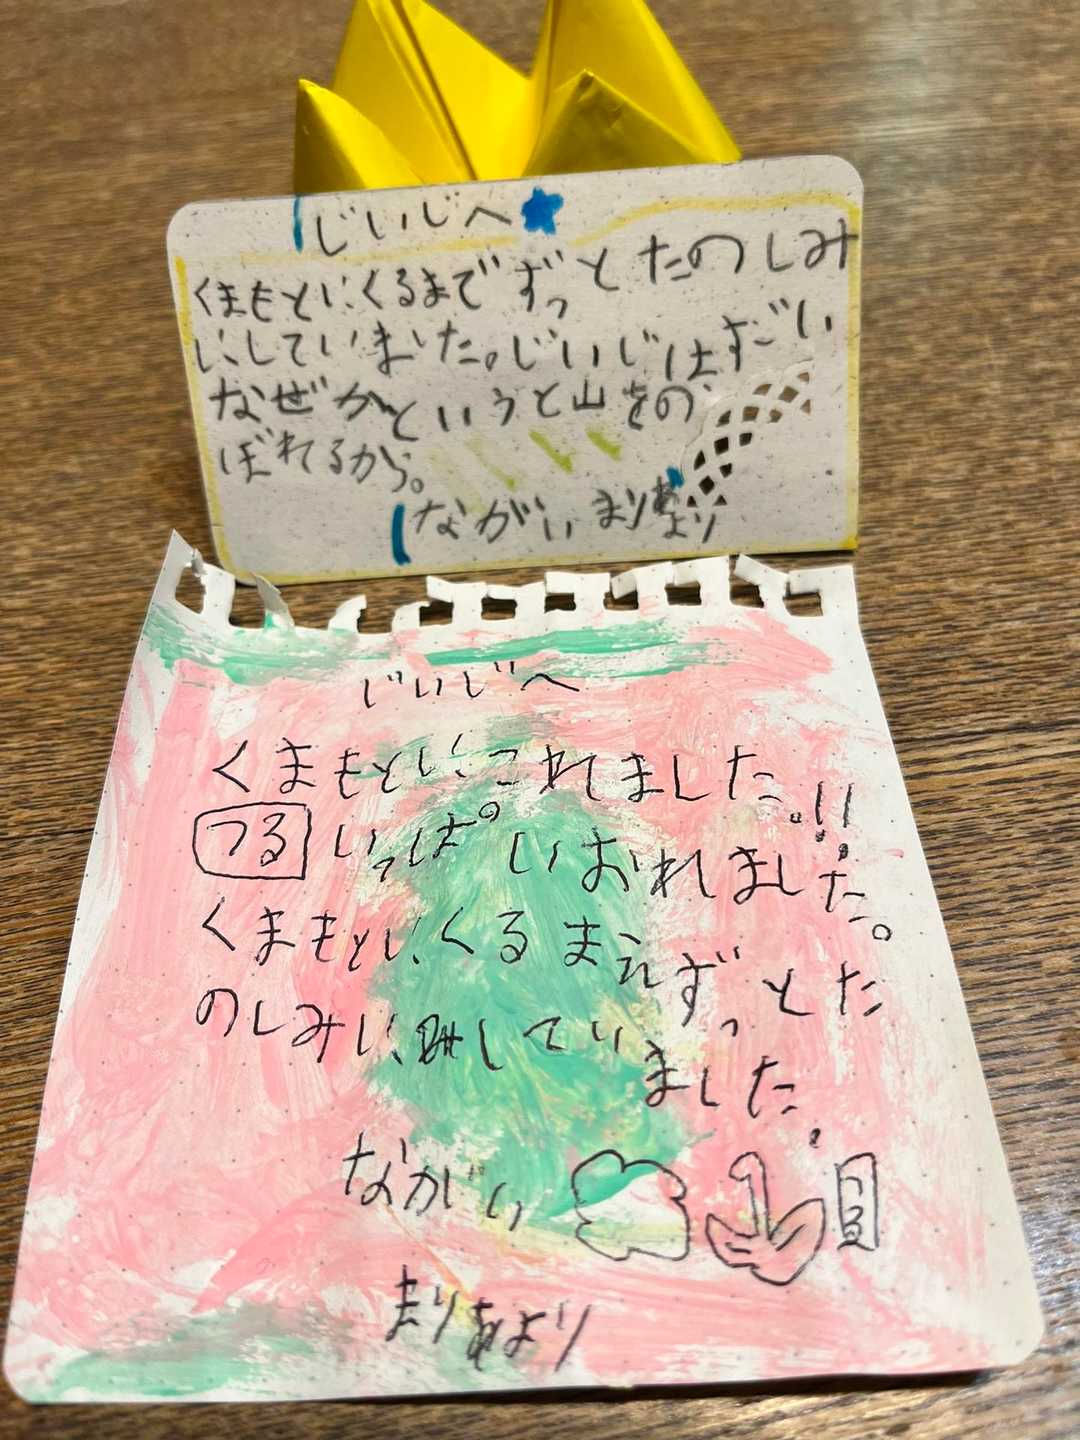 じいじへ
くまもとにくるまでずっとたのしみ
にしていました。じいじはすごい
なぜかというと山をの
ぼれるから。
ながい まりあより
じいじへ
くまもとにこれました。!!
つるいっぱいおれました。
くまもとにくるまえずっとた
のしみにしてい
ました。
ながい
つる
まりあより